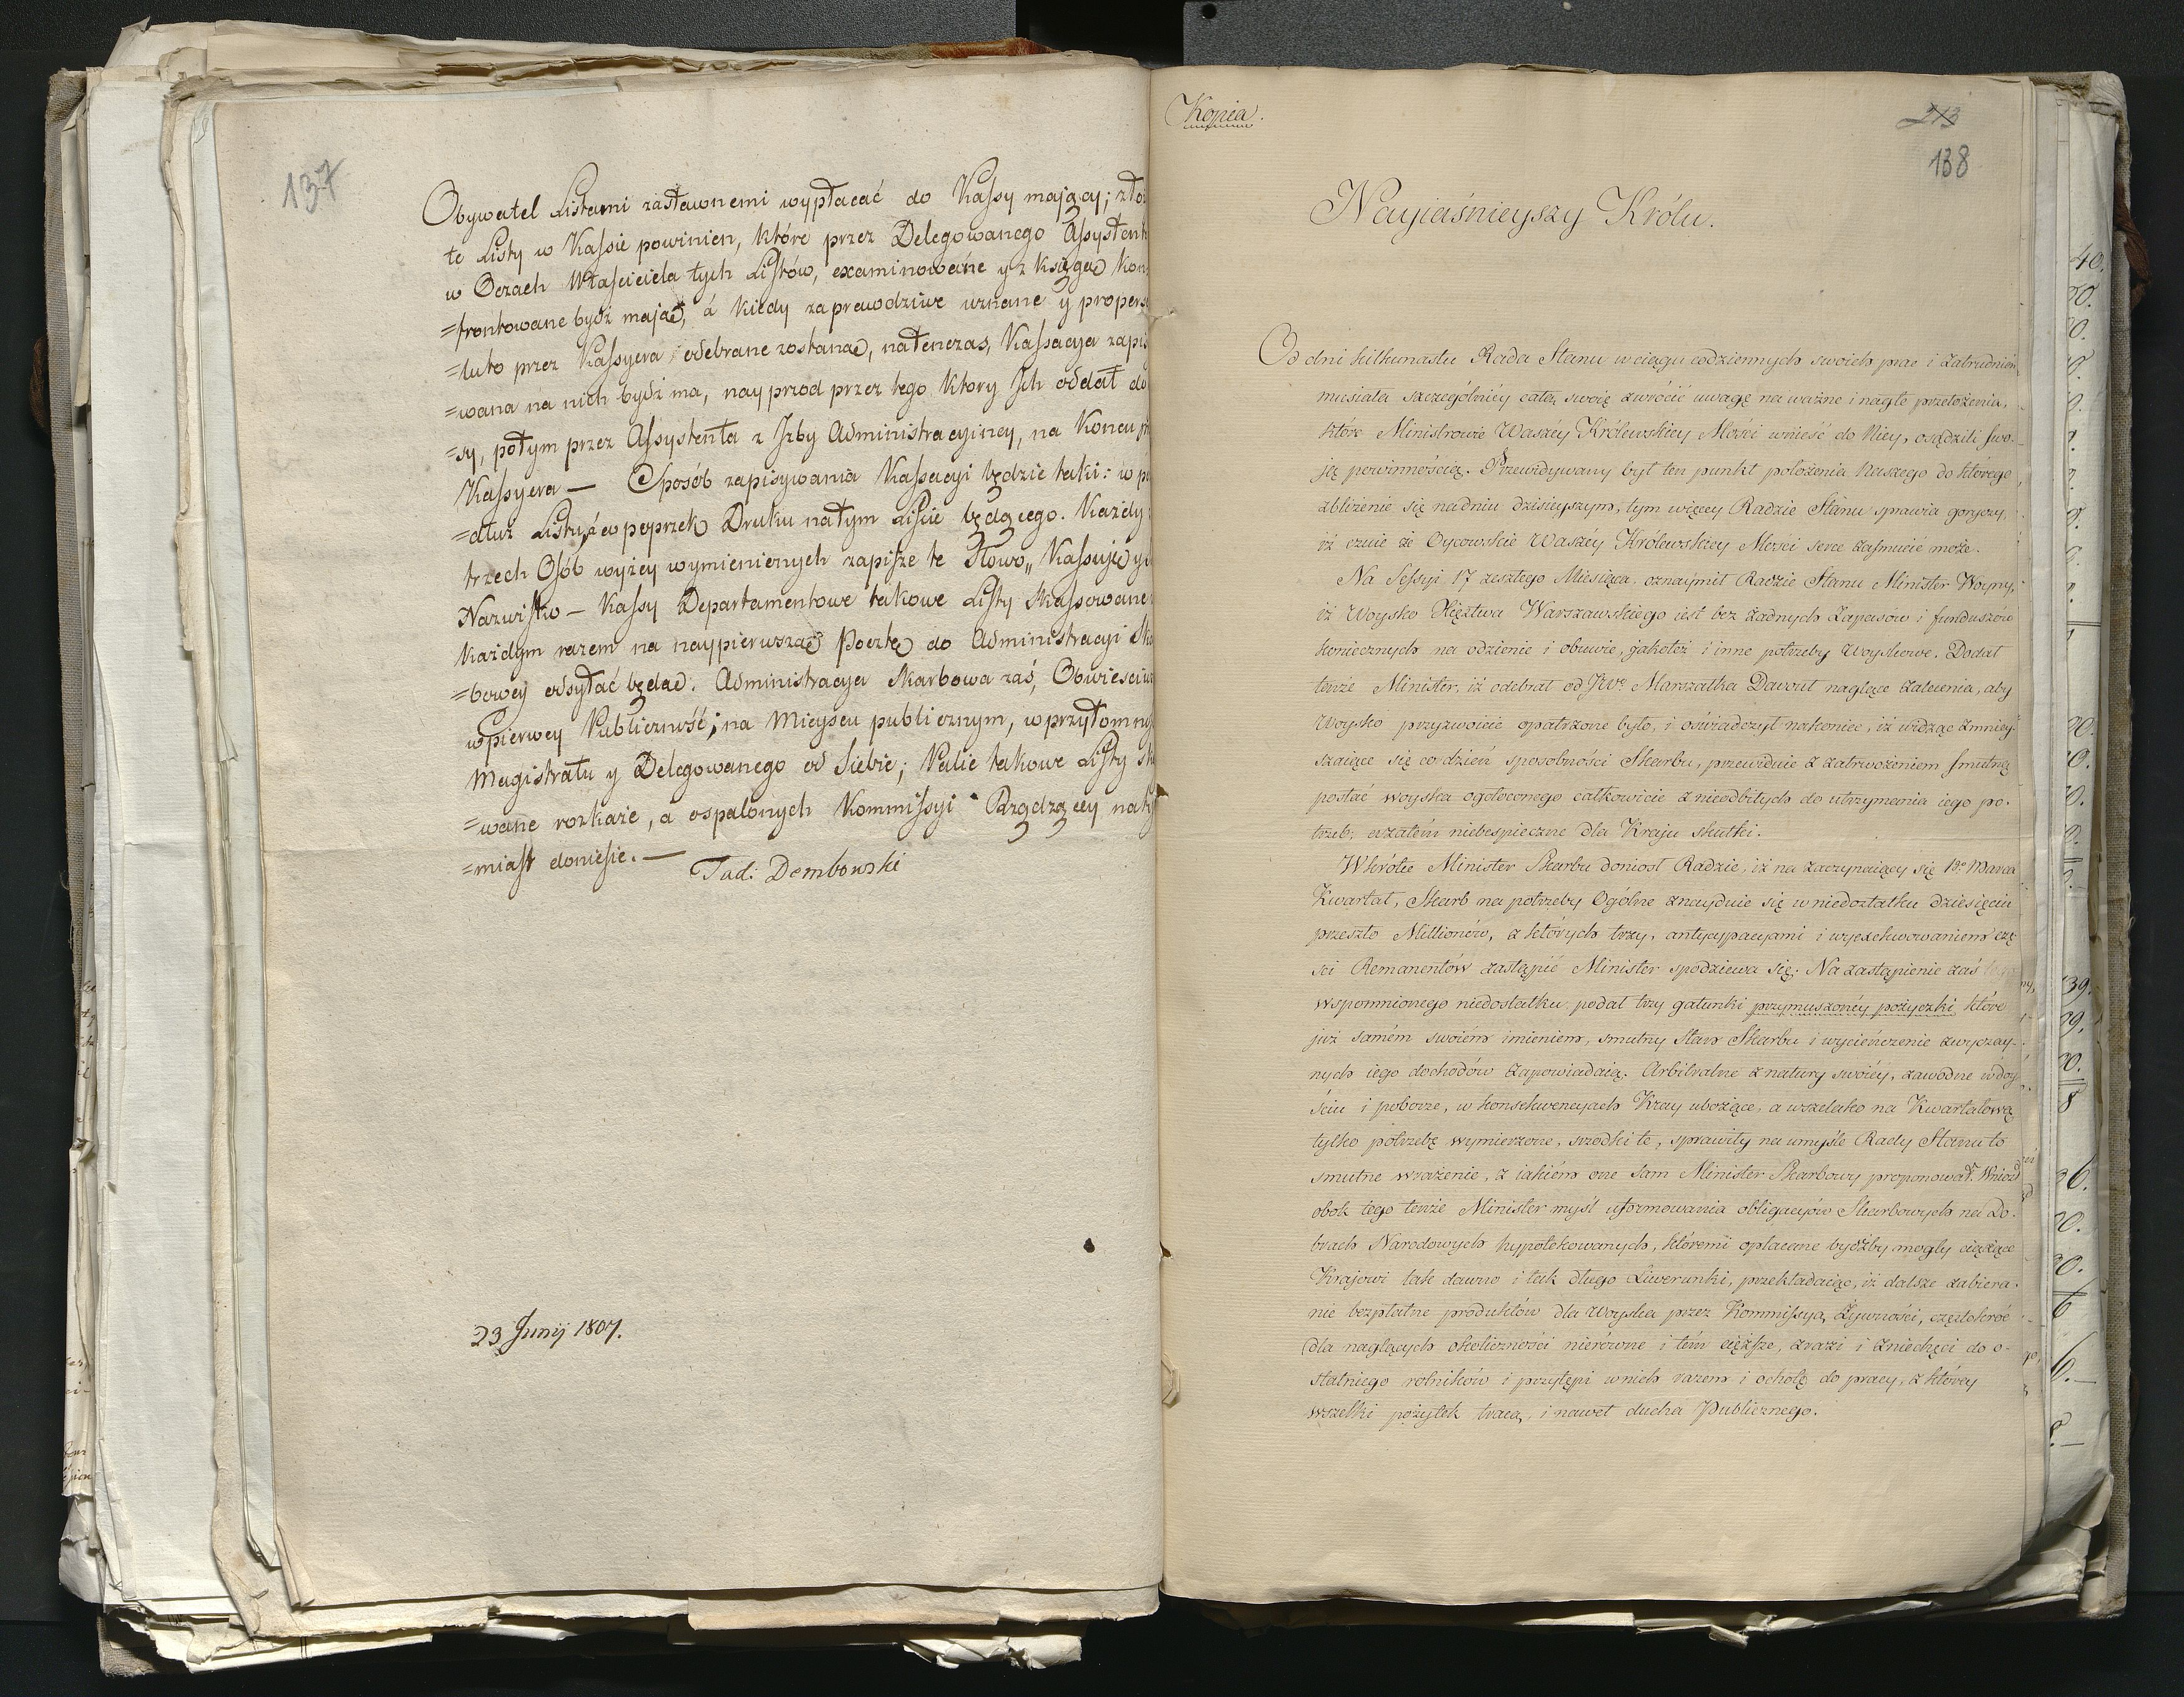 137
Obywatel Listami zastawnemi wypłacać do Kassy maiący; złoż
te Listy w Kassie powinien, które przez Delegowanego Assystent
w Oczach Właściciela tych Listów, examinowane y z Księgą kon
=frontowane bydź maią, á kiedy za prawdziwe uznane y pro pers
=luto przez Kassyera odebrane zostaną, natenczas, Kassacya zapis
=wana na nich bydź ma, nayprzod przez tego ktory Jch oddał do
=sy, potym przez Assystenta z Jzby Administracyiney, na Koncu prz
Kassyera — Sposób zapisywania Kassacyi będzie taki: w po
=dłuż Listu, á w poprzek Druku na tym Liście będącego. Każdy z
trzech Osób wyżey wymienionych zapisze te Słowo „ Kassuię y s
Nazwisko — Kassy Departamentowe takowe Listy skassowane
każdym razem na naypierwszą Pocztę do Administracyi Ska
=bowey odsyłać będą. Administracya Skarbowa zaś, Obwieściw
wpierwey Publiczność; na Mieyscu publicznym, w przytomno
Magistratu y Delegowanego od Siebie; Palić takowe Listy sk
=wane rozkaże, a o spalonych Kommissyi Rządzącey naty
=miast doniesie. — Tad: Dembowski
23 Junij 1807.
Kopia.
213
138
Nayiaśnieyszy Królu.
Od dni kilkunastu Rada Stanu w ciągu codziennych swoich prac i zatrudnień
musiała szczególniéy całą swoię zwrócić uwagę na ważne i nagłe przełożenia,
które Ministrowie Waszéy Królewskiey Mości wnieść do Niey, osądzili swo-
ją powinnością. Przewidywany był ten punkt położenia Naszego do którego
zbliżenie się na dniu dzisieyszym, tym więcey Radzie Stanu sprawia goryczy,
iż czuie że Oycowskie Waszéy Królewskiey Mości serce zasmucić może.
Na Sessyi 17 zeszłego Miesiąca oznaymił Radzie Stanu Minister Woyny,
iż Woysko Xięztwa Warszawskiego iest bez żadnych Zapasów i funduszów
koniecznych na odzienie i obuwie, jakoteż i inne potrzeby Woyskowe. Dodał
tenże Minister, iż odebrał od JWo Marszałka Davout naglące zalecenia, aby
Woysko przyzwoicie opatrzone było, i oświadczył nakoniec, iż widząc zmniey-
szaiące się codzień sposobności Skarbu, przewiduie z zatrwożeniem smutną
postać woyska ogołoconego całkowicie z nieodbitych do utrzymania iego po-
trzeb, a zatém niebespieczne dla Kraju skutki.
Wkrótce Minister Skarbu doniosł Radzie, iż na zaczynaiący się 1o Marca
Kwartał, Skarb na potrzeby Ogólne znayduie się w niedostatku dziesięciu
przeszło Millionów, z których trzy, antycypacyami i wyexekwowaniem czę
sci Remanentów zastąpić Minister spodziewa się. Na zastąpienie zaś
wspomnionego niedostatku podał trzy gatunki przymuszonéy pożyczki które
już samém swoiém imieniem, smutny stan Skarbu i wycieńczenie zwyczay-
nych iego dochodów zapowiadaią. Arbitralne z natury swoiéy, zawodne w doy-
ściu i poborze, w konsekwencyach Kray ubożące, a wszelako na Kwartałową
tylko potrzebę wymierzone, srzodki te, sprawiły na umyśle Rady Stanu to
smutne wrażenie, z iakiém one sam Minister Skarbowy proponował. Wniosł
obok tego tenże Minister myśl uformowania obligacyów Skarbowych na Do-
brach Narodowych hypotekowanych, któremi opłacane bydźby mogły ciążące
Krajowi tak dawno i tak długo Liwerunki, przekładaiąc, iż dalsze zabiera-
nie bezpłatne produktów dla Woyska przez Kommissyą Żywności, częstokroć
dla naglących okoliczności nierówne i tém cięższe, zrazi i zniechęci do o-
statniego rolników i przytępi w nich razem i ochotę do pracy, z którey
wszelki pożytek tracą, i nawet ducha Publicznego.